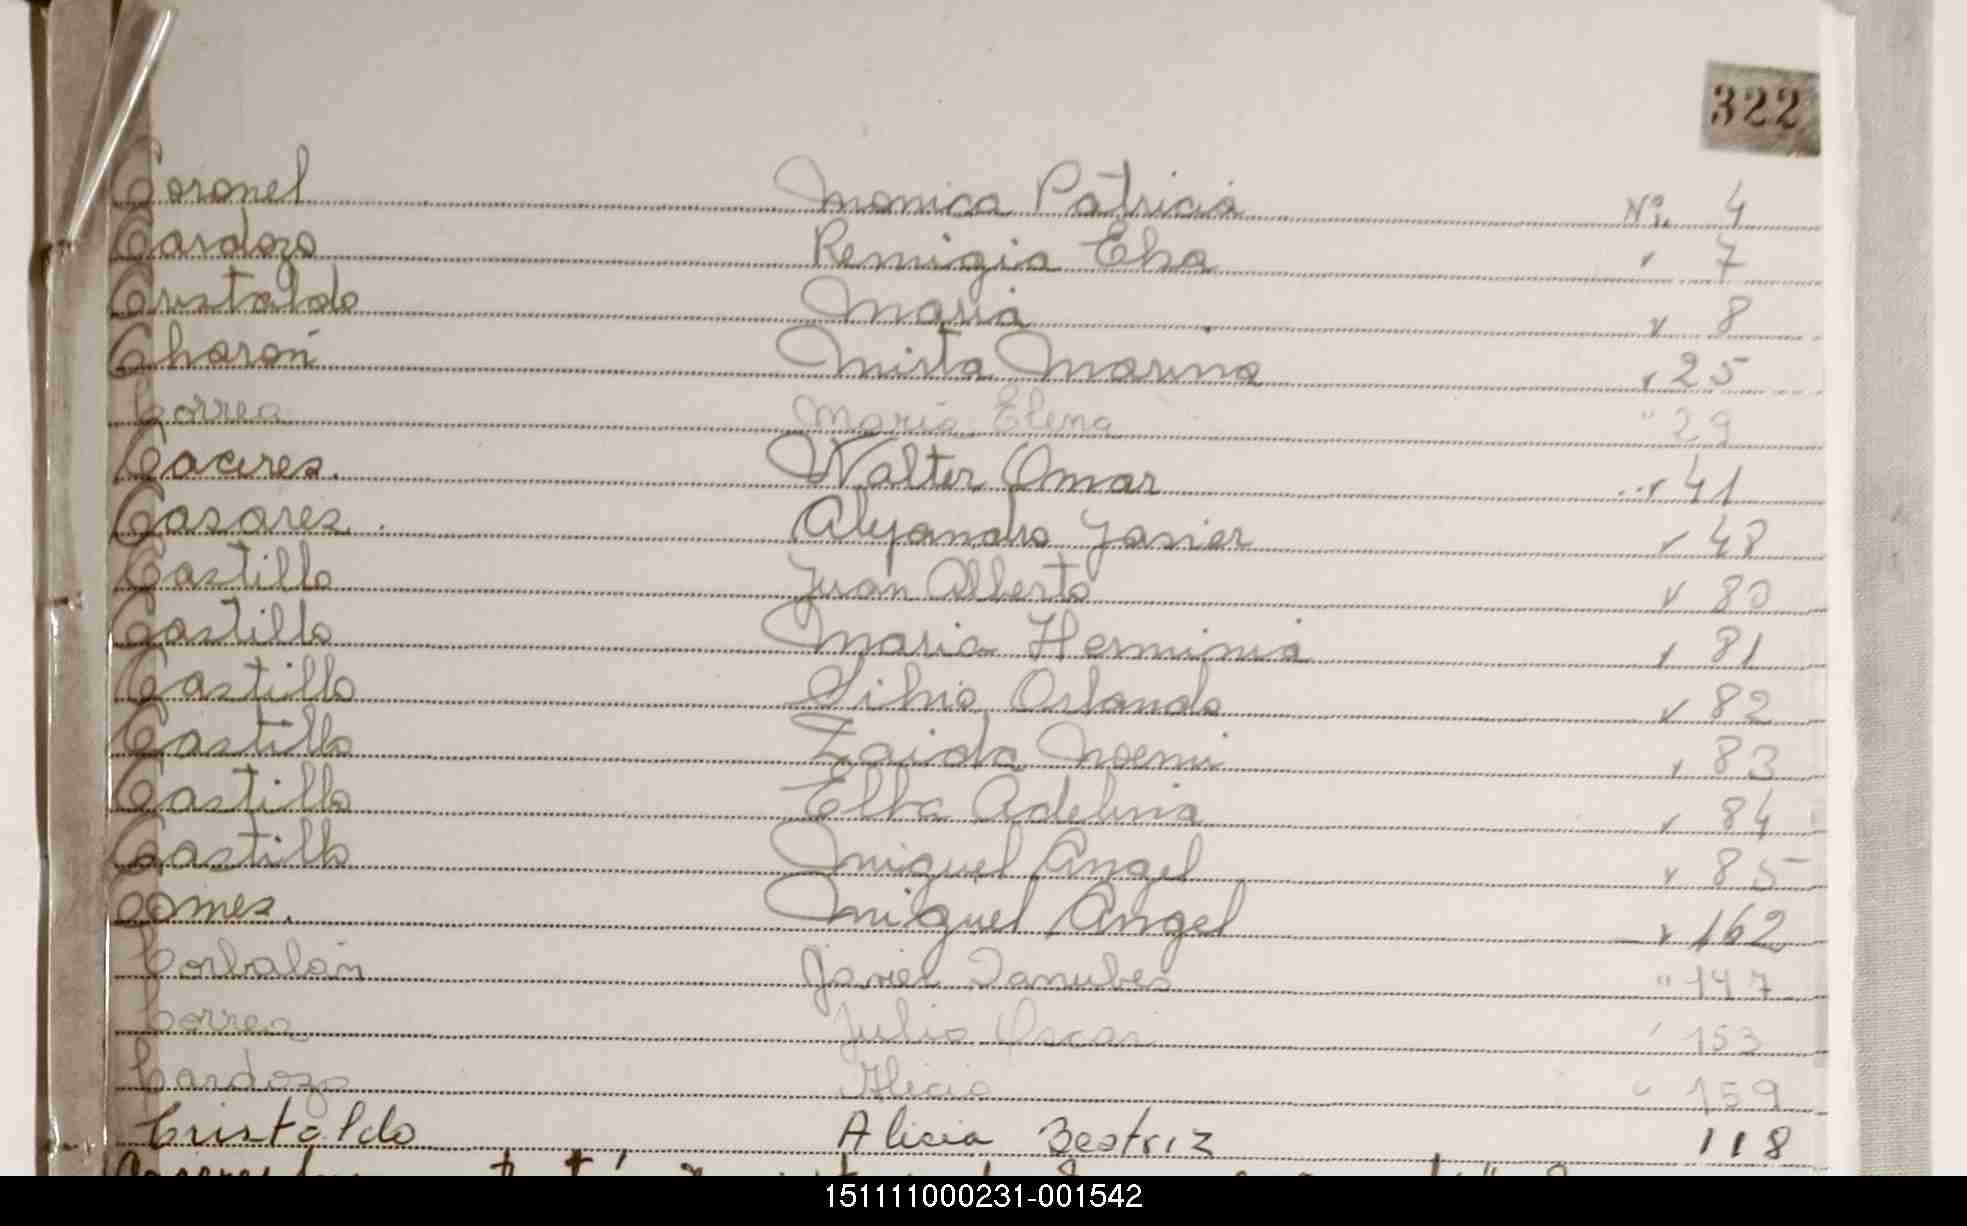 322
Coronel Monica Patricia Nº 4
Cardozo Remigia Elsa " 7
Cristaldo Maria " 8
Mirta Marina " 25
Correa Maria Elena " 29
Caceres. Walter Omar " 41
Casares. Alejandro Javier " 48
Castillo Juan Alberto " 80
Castillo Maria Herminia " 81
Castillo Silvio Orlando " 82
Castillo Zaida Noemi " 83
Castillo Elba Adelina " 84
Castillo Miguel Angel " 85
Miguel Angel " 162
Corbalán Javier " 147
Correa Julio Oscar " 153
Cardozo Alicia " 159
Cristaldo Alicia Beatriz 118
151111000231-001542